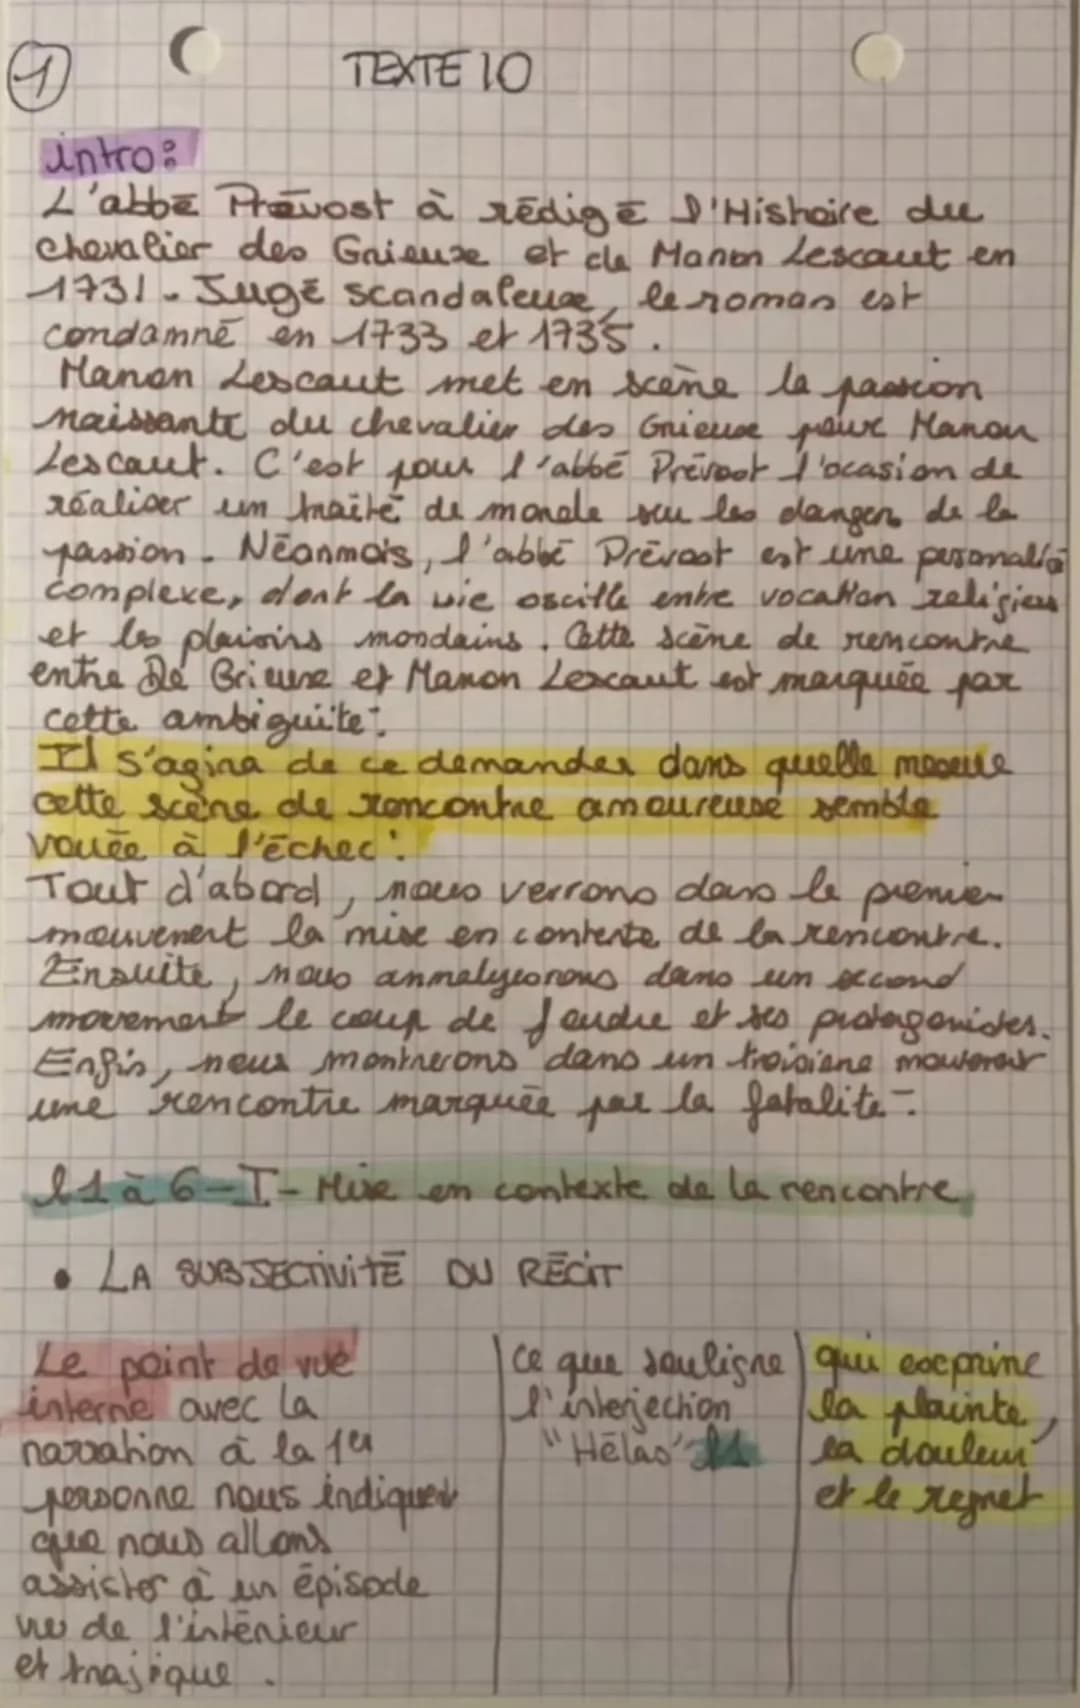 1
TEXTE 10
intro:
L'abbé Prévost à rédigé l'Histoire du
chevalier des Grieuxe et de Manon Lescaut en
1731. Jugé scandaleuxe, le roman est
condamné en 1733 et 1735.
Manon Lescaut met en scène la passion
naissante du chevalier des Grieuxe pour Manon
Lescaut. C'est pour l'abbé Prévost l'ocasion de
réaliser un traité de morale sur les dangers de la
passion. Néanmois, l'abbé Prévost est une personalité
complexe, dont la vie oscille entre vocation religieus
et les plaisirs mondains. Cette scène de rencontre
entre De Grieuxe et Manon Lescaut est marquée par
cette ambiguïte.
Il s'agira de ce demander dans quelle mesure
cette scène de rencontre amoureuse semble
vouée à l'échec.
Tout d'abord, nous verrons dans le premier
mouvement la mise en contexte de la rencontre.
Ensuite, nous annalyserons dans un second
mouvement le coup de foudre et ses protagonistes.
Enfin, nous montrerons dans un troisième mouvement
une rencontre marquée par la fatalité.
l1 à 6 - I - Mise en contexte de la rencontre
• LA SUBJECTIVITÉ DU RÉCIT
Le point de vue
interne avec la
narration à la 1er
personne nous indiquent
que nous allons
assister à un épisode
vu de l'intérieur
et trajique.
Ce que souligne
l'interjection
"Hélas" l1
qui exprime
la plainte,
la douleur
et le regret